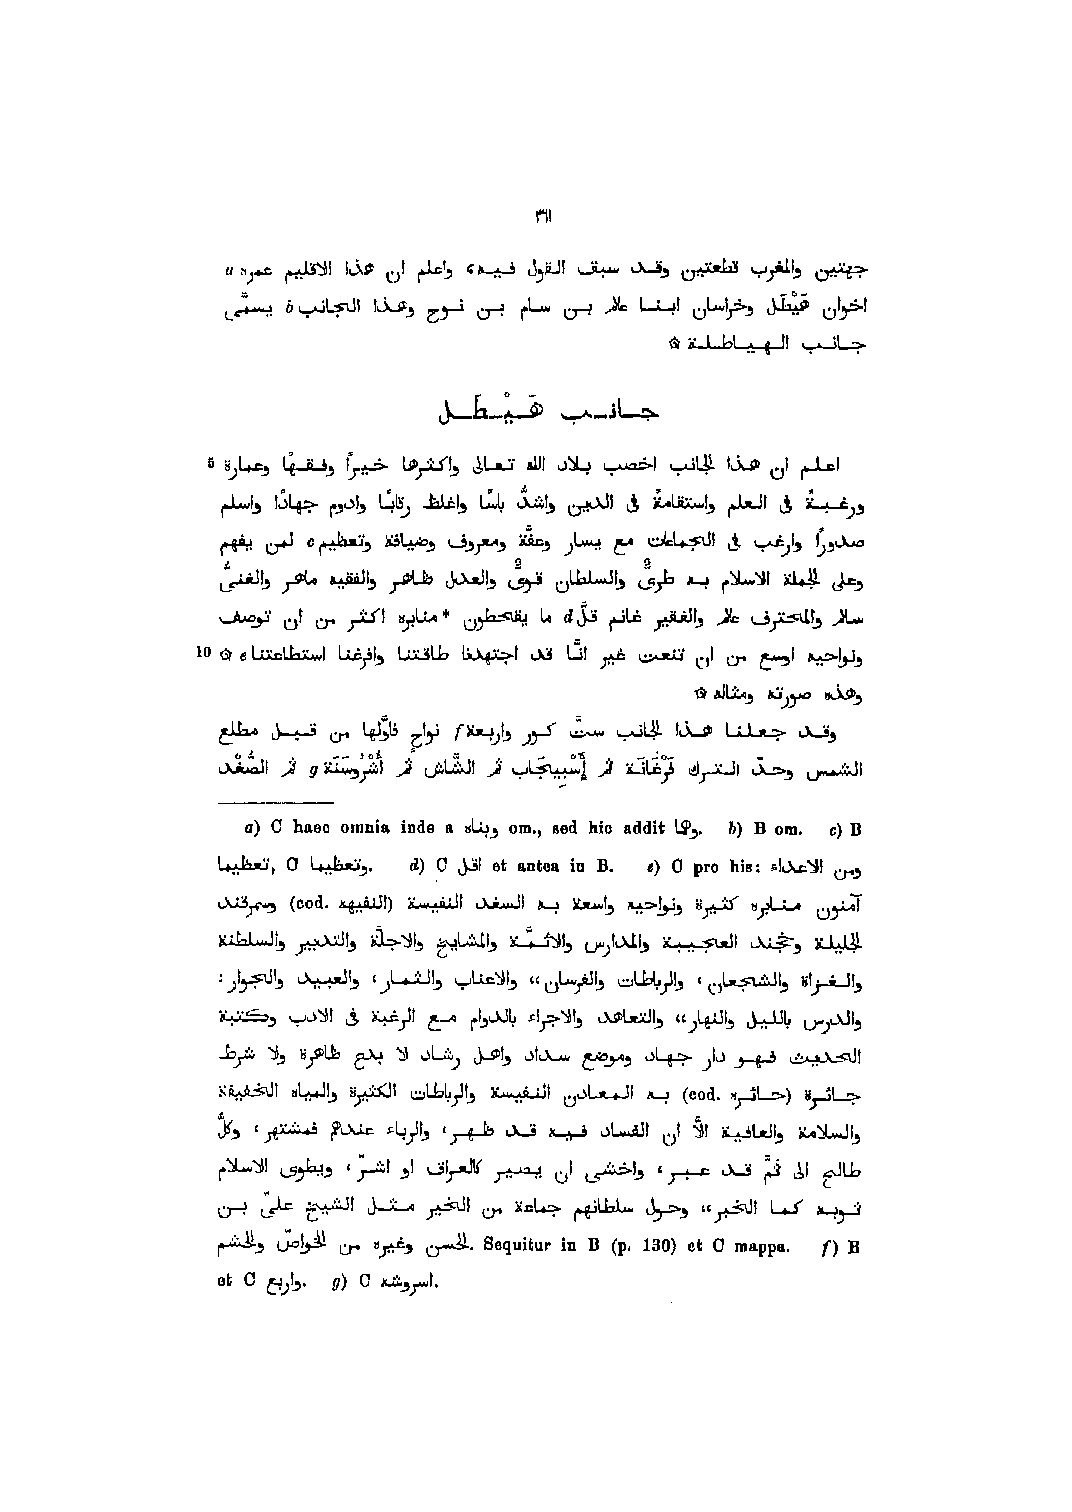 ٢٦١
جهتين والمغرب قطعتين وقد سبق القول فيه، واعلم ان هذا الاقليم عمره a
اخوان هَيْطَل وخراسان ابنا عالم بن سام بن نوح وهذا الجانب b يسمَّى
جانب الهياطلة ۞
جانب هَيْطَل
اعلم ان هذا الجانب اخصب بلاد الله تعالى واكثرها خيراً وفقهًا وعمارة 5
ورغبةً فى العلم واستقامةً فى الدين واشدُّ بأسًا واغلظ رقابًا وادوم جهادًا واسلم
صدورًا وارغب فى الجماعات مع يسار وعفّة ومعروف وضيافة وتعظيم c لمن يفهم
وعلى الجملة الاسلام به طرىٌّ والسلطان قوىٌّ والعدل ظاهر والفقيه ماهر والغنىُّ
سالم والمحترف عالم والفقير غانم قلَّ d ما يقحطون *منابره اكثر من ان توصف
ونواحيه اوسع من ان تنعت غير انَّا قد اجتهدنا طاقتنا وافرغنا استطاعتنا e ۞ 10
وهذه صورته ومثاله ۞
وقد جعلنا هذا الجانب ستَّ كور واربعة f نواحٍ فاوَّلها من قبل مطلع
الشمس وحدّ الترك فَرْغَانَة ثم إِسْبِيجَاب ثم الشَّاش ثم أُشْرُوسَنَة g ثم الصُّغْد
a) C haec omnia inde a وبناه om., sed hic addit وقا. b) B om. c) B
تعظيما, C وتعظيما. d) C اقل et antea in B. e) C pro his: ومن الاعداء
آمنون منابره كثيرة ونواحيه واسعة به السغد النفيسة (cod. النفيهه) وسمرقند
الجليلة وخجند العجيبة والمدارس والائمَّة والمشايخ والاجلَّة والتدبير والسلطنة
والغزاة والشجعان، والرباطات والفرسان،، والاعناب والثمار، والعبيد والجوار:
والدرس بالليل والنهار،، والتعاهد والاجراء بالدوام مع الرغبة فى الادب وكتبة
الحديث فهو دار جهاد وموضع سداد واهل رشاد لا بدع ظاهرة ولا شرط
جائرة (cod. جائره) به المعادن النفيسة والرباطات الكثيرة والمياه الخفيفة
والسلامة والعافية الَّا ان الفساد فيه قد ظهر، والرباء عندهم فمشتهر، وكلُّ
طالح الى ثَمَّ قد عبر، واخشى ان يصير كالعراق او اشرّ، ويطوى الاسلام
ثوبه كما الخبر،، وحول سلطانهم جماعة من الخير مثل الشيخ علىّ بن
الحسن وغيره من الخواصّ والحشم. Sequitur in B (p. 130) et C mappa. f) B
et C واربع. g) C اسروشنه.